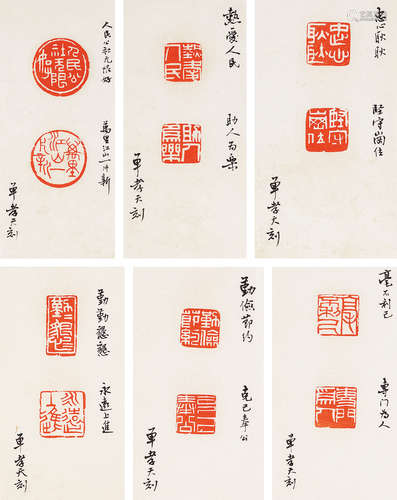 人民公社无限好
万里江山一片新
单孝天刻
热爱人民
助人为乐
单孝天刻
忠心耿耿
坚守岗位
单孝天刻
勤勤恳恳
永远上进
单孝天刻
勤俭节约
克己奉公
单孝天刻
毫不利己
专门为人
单孝天刻